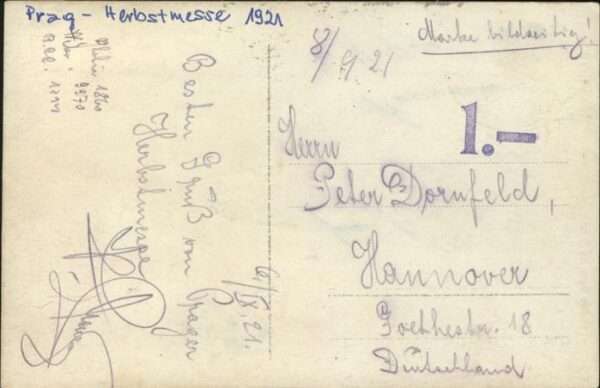 Prag - Herbstmesse 1921
8/9 21
Marke bildseitig!
1.-
Herrn
Peter Dornfeld,
Hannover
Goethestr. 18
Deutschland
Besten Gruß von Prager
Herbstmesse.
6/IX. 21.